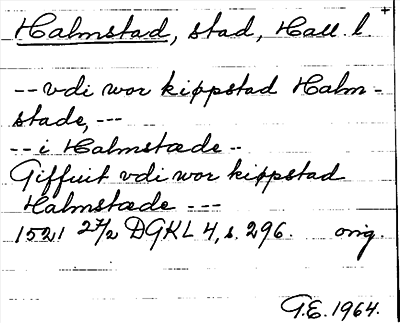 Halmstad, stad, Hall. l. +
-- vdi wor kiøpstad Halm-
stade, ---
-- i Halmstæde --
Giffuit vdi wor kiøpstad
Halmstæde ---
1521 27/2 DGKL 4, s. 296. orig.
G.E. 1964.